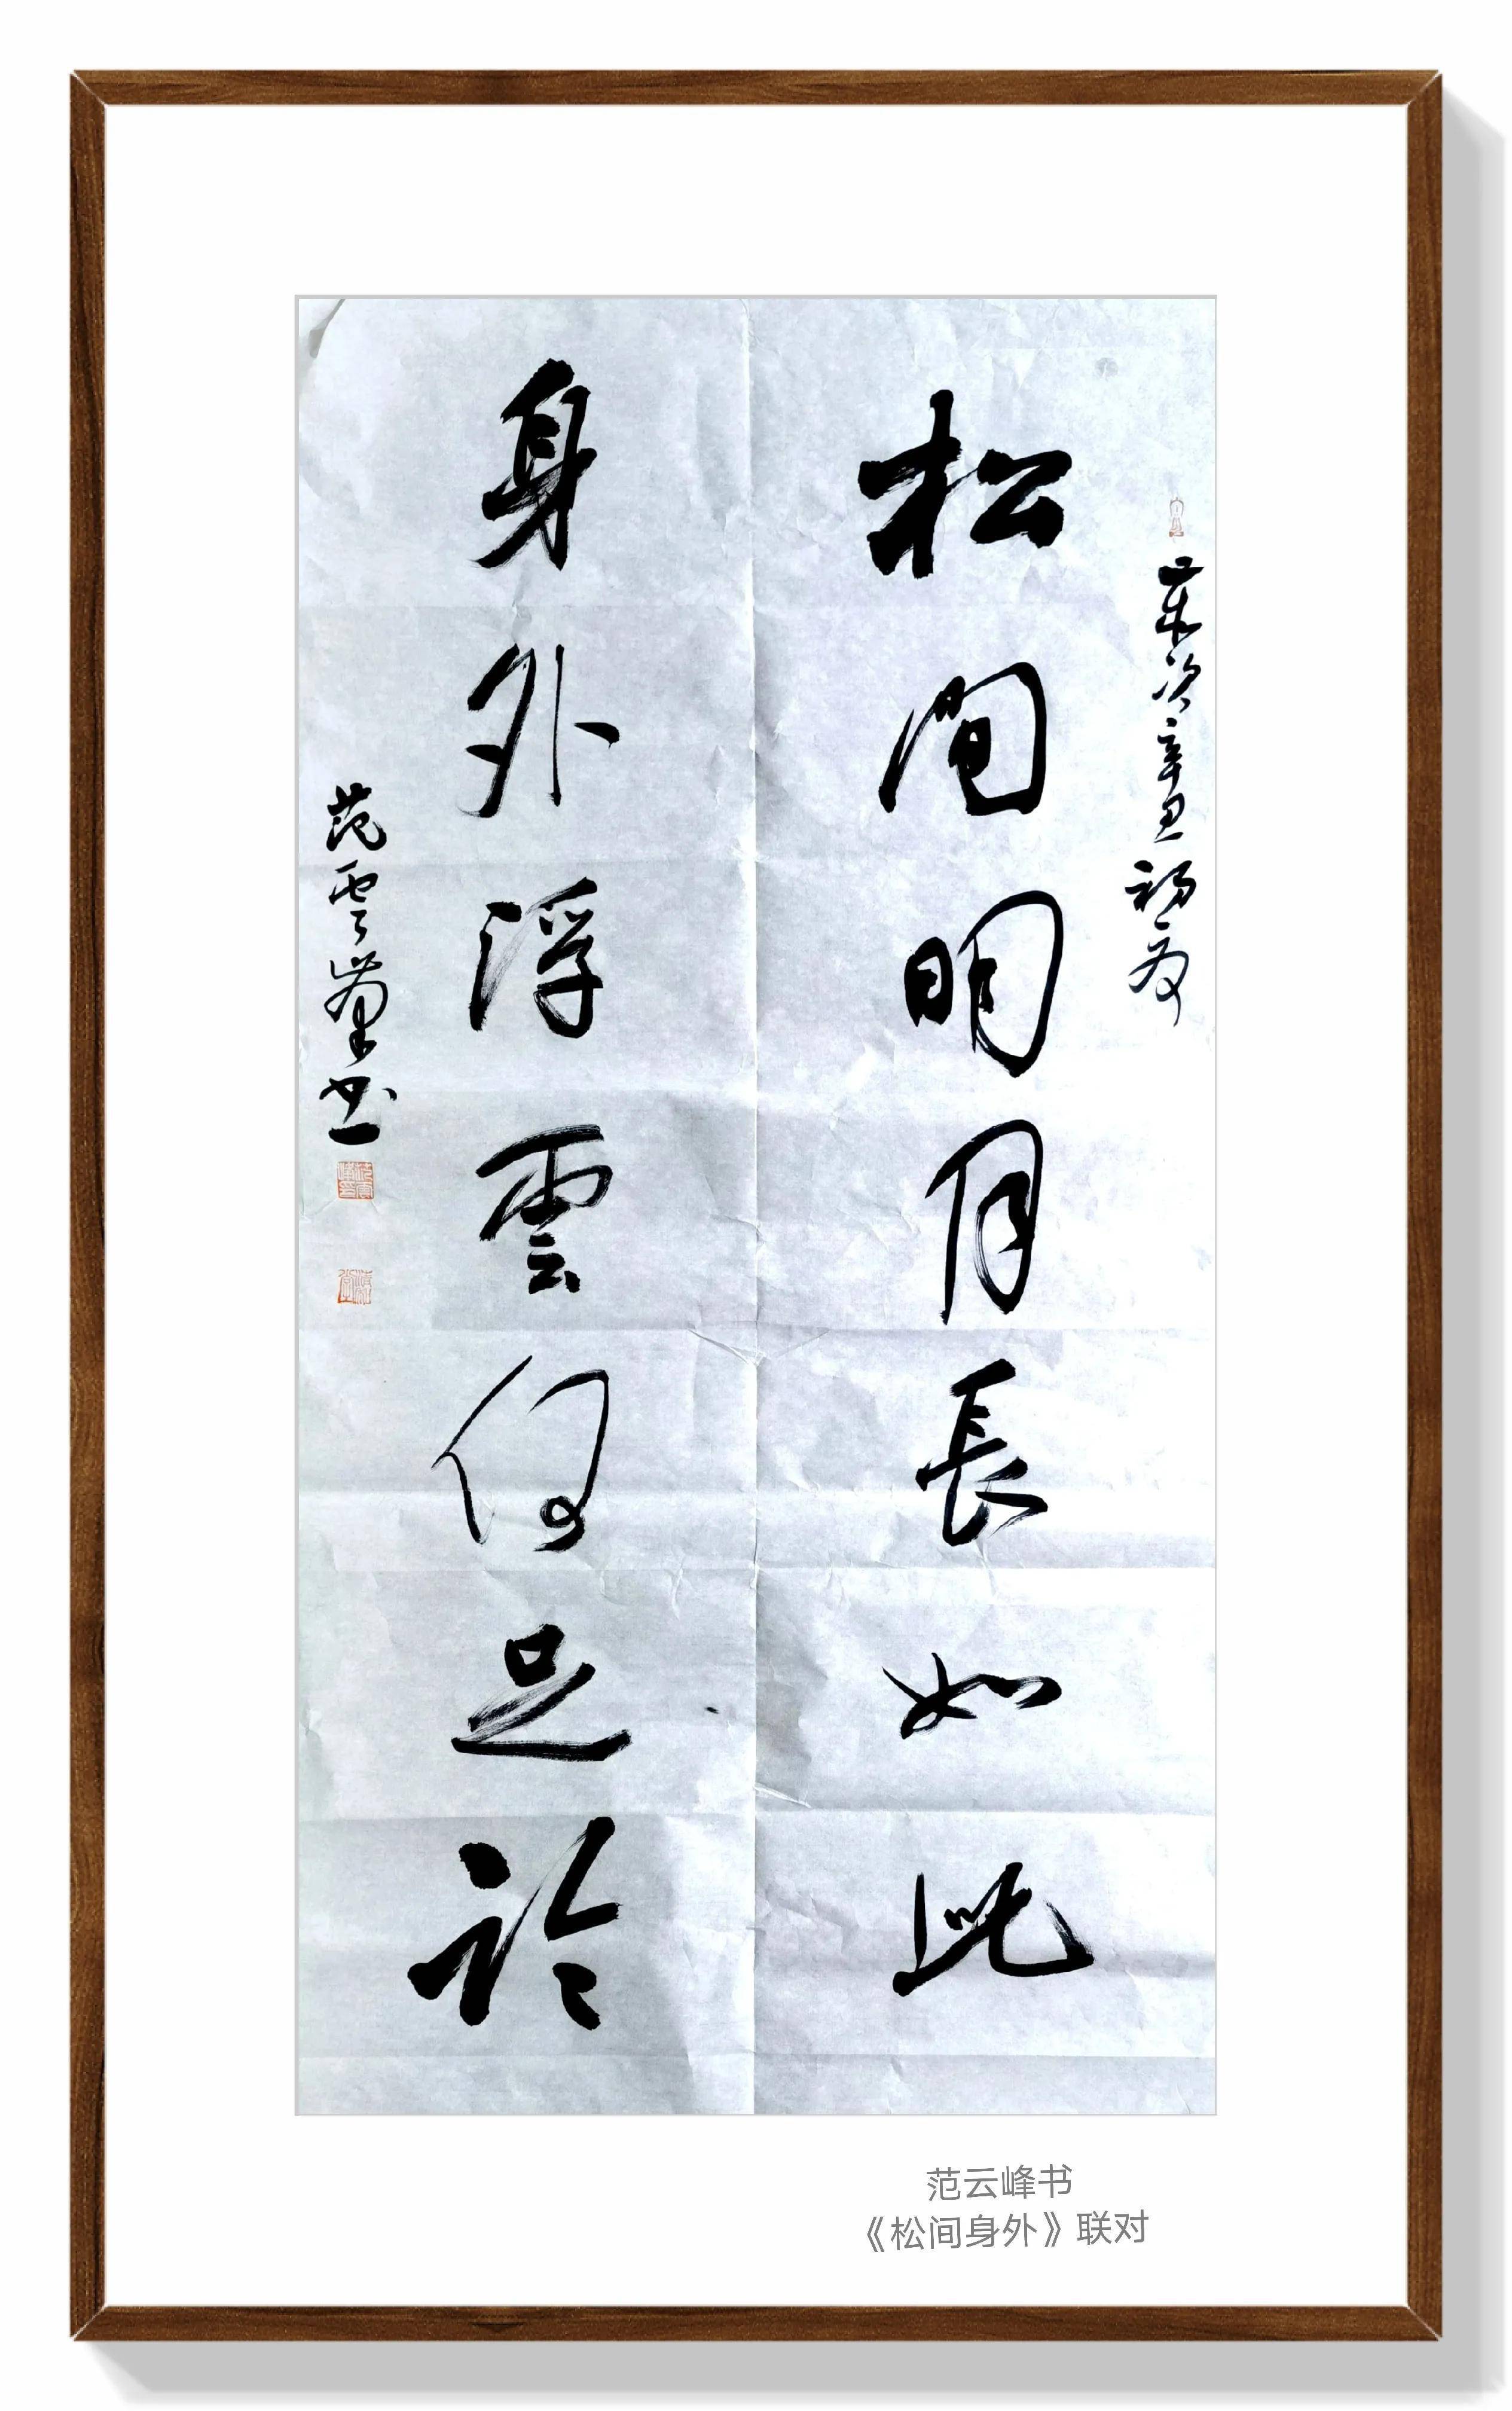 歲次辛丑初夏
松間明月長如此
身外浮雲何足論
范雲峯書
范云峰书
《松间身外》联对